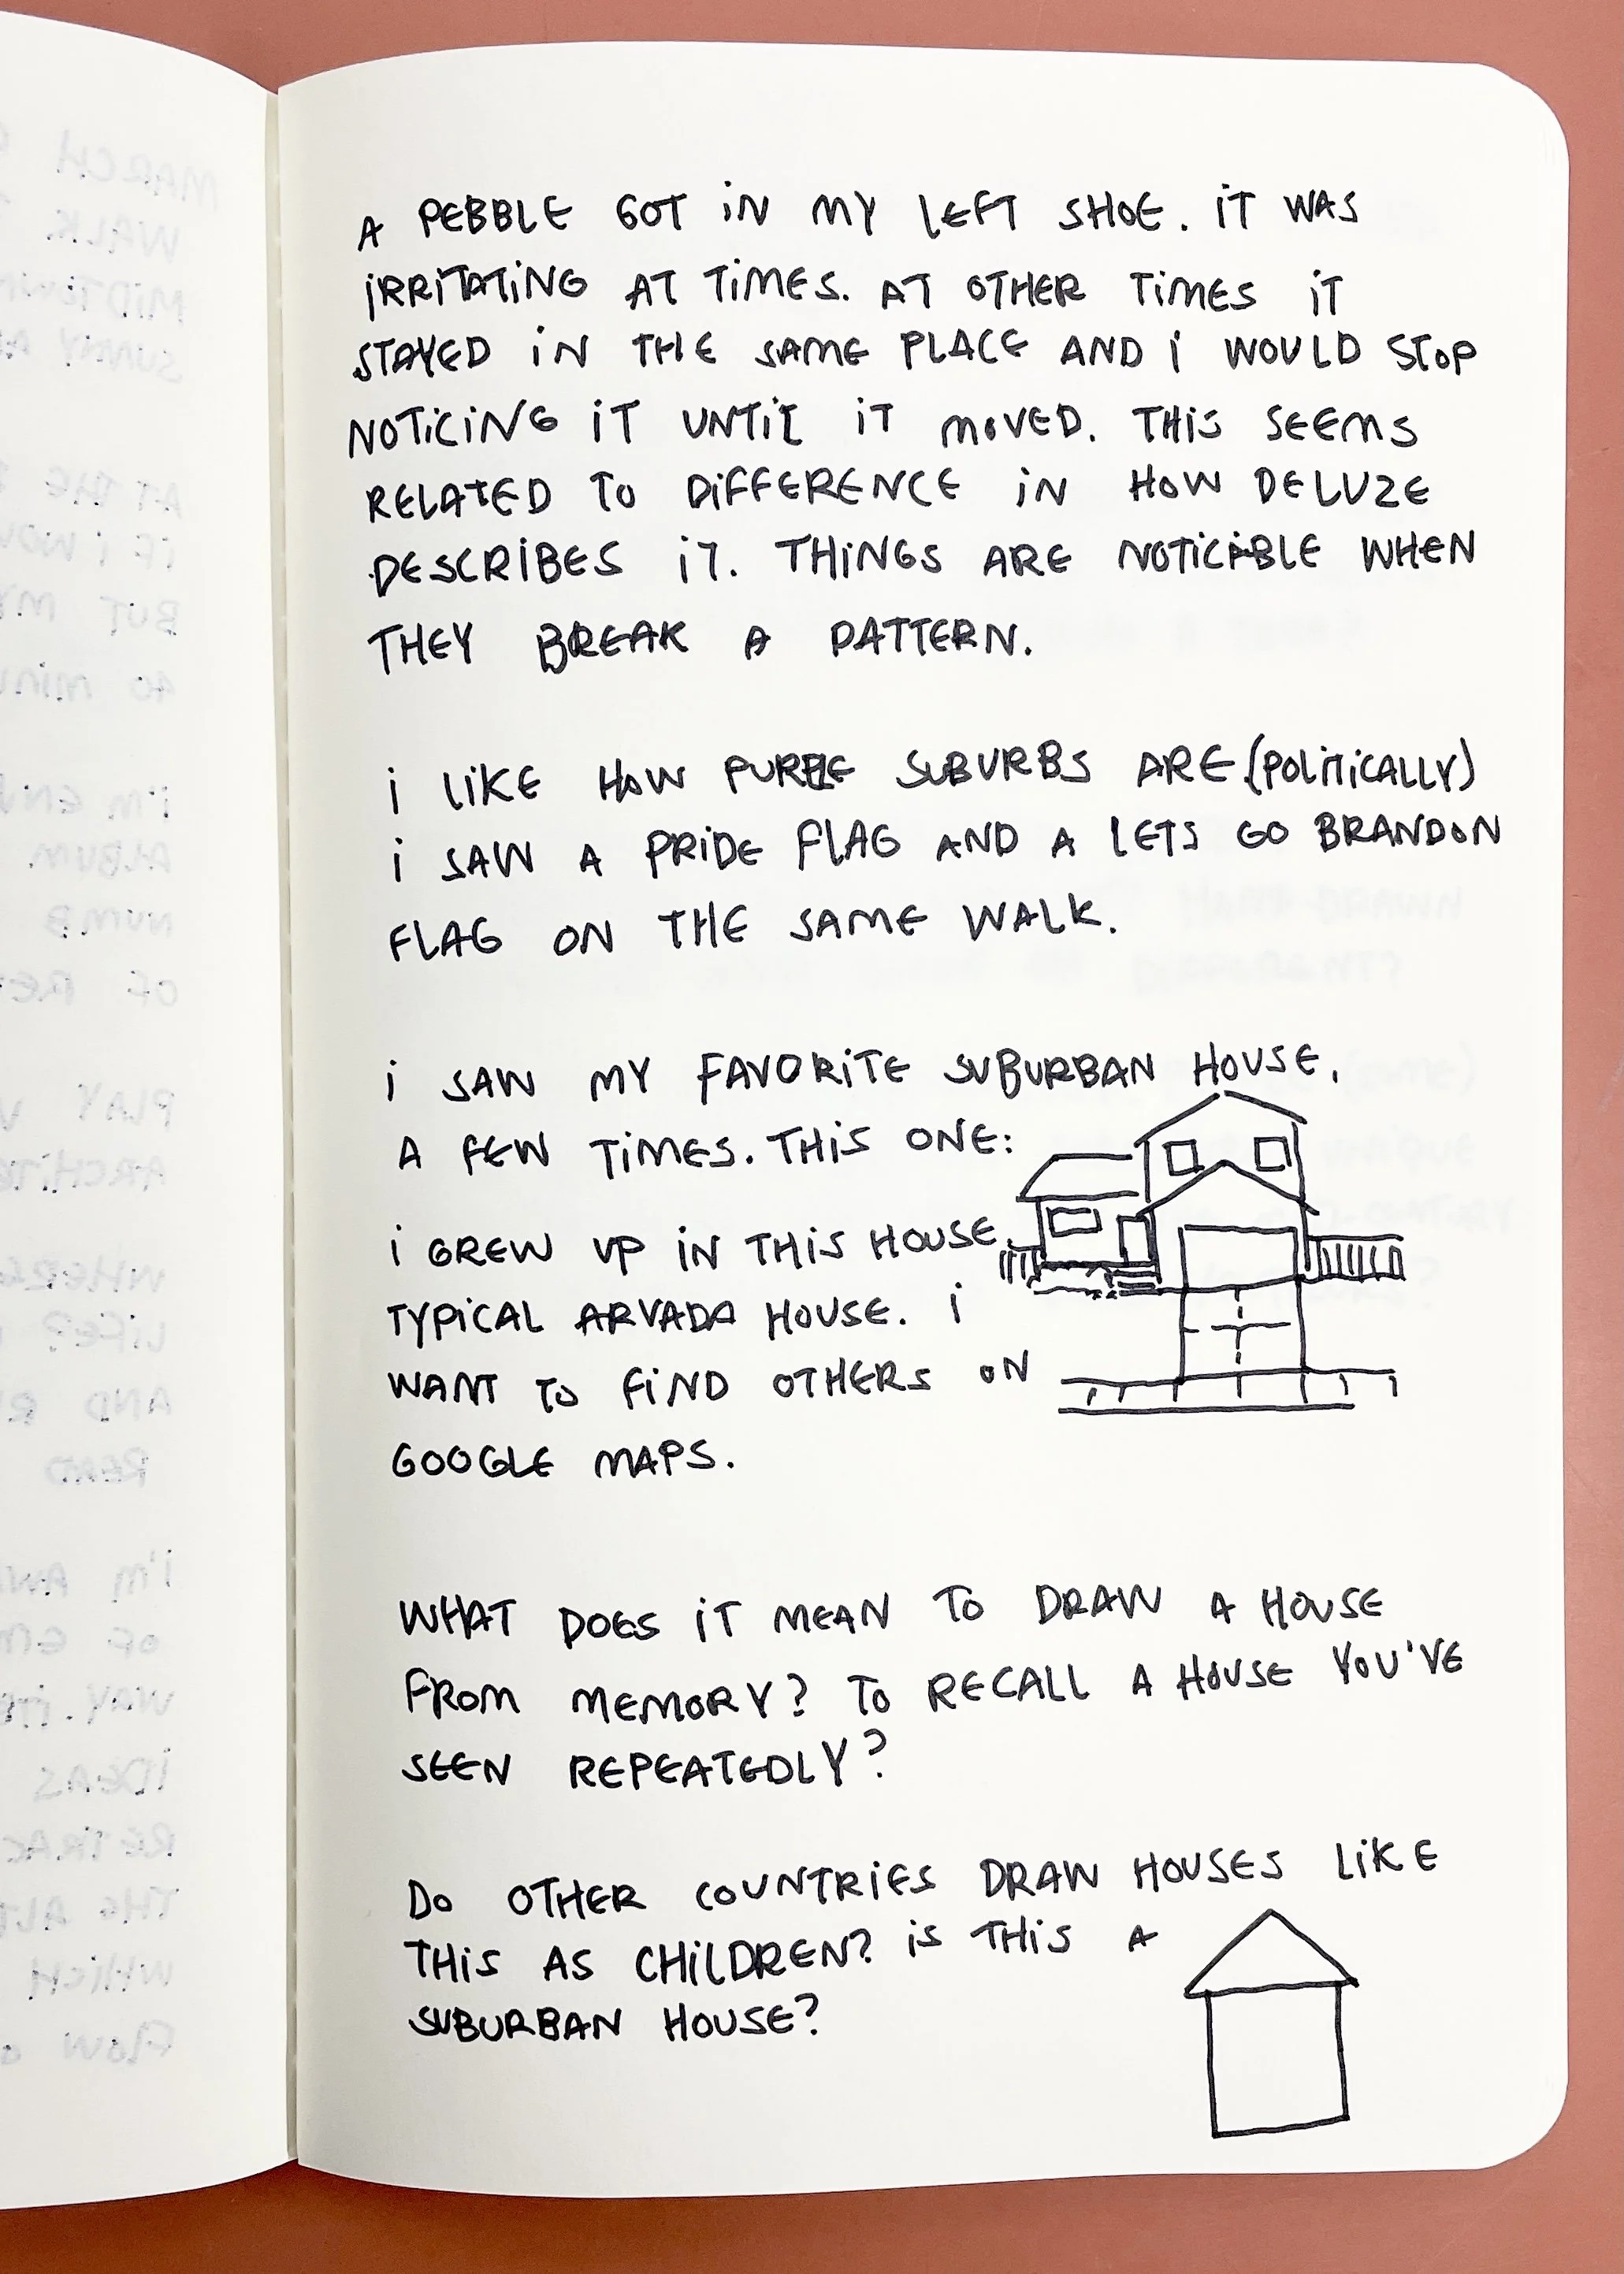 A PEBBLE GOT IN MY LEFT SHOE. IT WAS
IRRITATING AT TIMES. AT OTHER TIMES IT
STAYED IN THE SAME PLACE AND I WOULD STOP
NOTICING IT UNTIL IT MOVED. THIS SEEMS
RELATED TO DIFFERENCE IN HOW DELUZE
DESCRIBES IT. THINGS ARE NOTICIBLE WHEN
THEY BREAK A PATTERN.
I LIKE HOW PURPLE SUBURBS ARE (POLITICALLY)
I SAW A PRIDE FLAG AND A LETS GO BRANDON
FLAG ON THE SAME WALK.
I SAW MY FAVORITE SUBURBAN HOUSE,
A FEW TIMES. THIS ONE:
I GREW UP IN THIS HOUSE.
TYPICAL ARVADA HOUSE. I
WANT TO FIND OTHERS ON
GOOGLE MAPS.
WHAT DOES IT MEAN TO DRAW A HOUSE
FROM MEMORY? TO RECALL A HOUSE YOU'VE
SEEN REPEATEDLY?
DO OTHER COUNTRIES DRAW HOUSES LIKE
THIS AS CHILDREN? IS THIS A
SUBURBAN HOUSE?